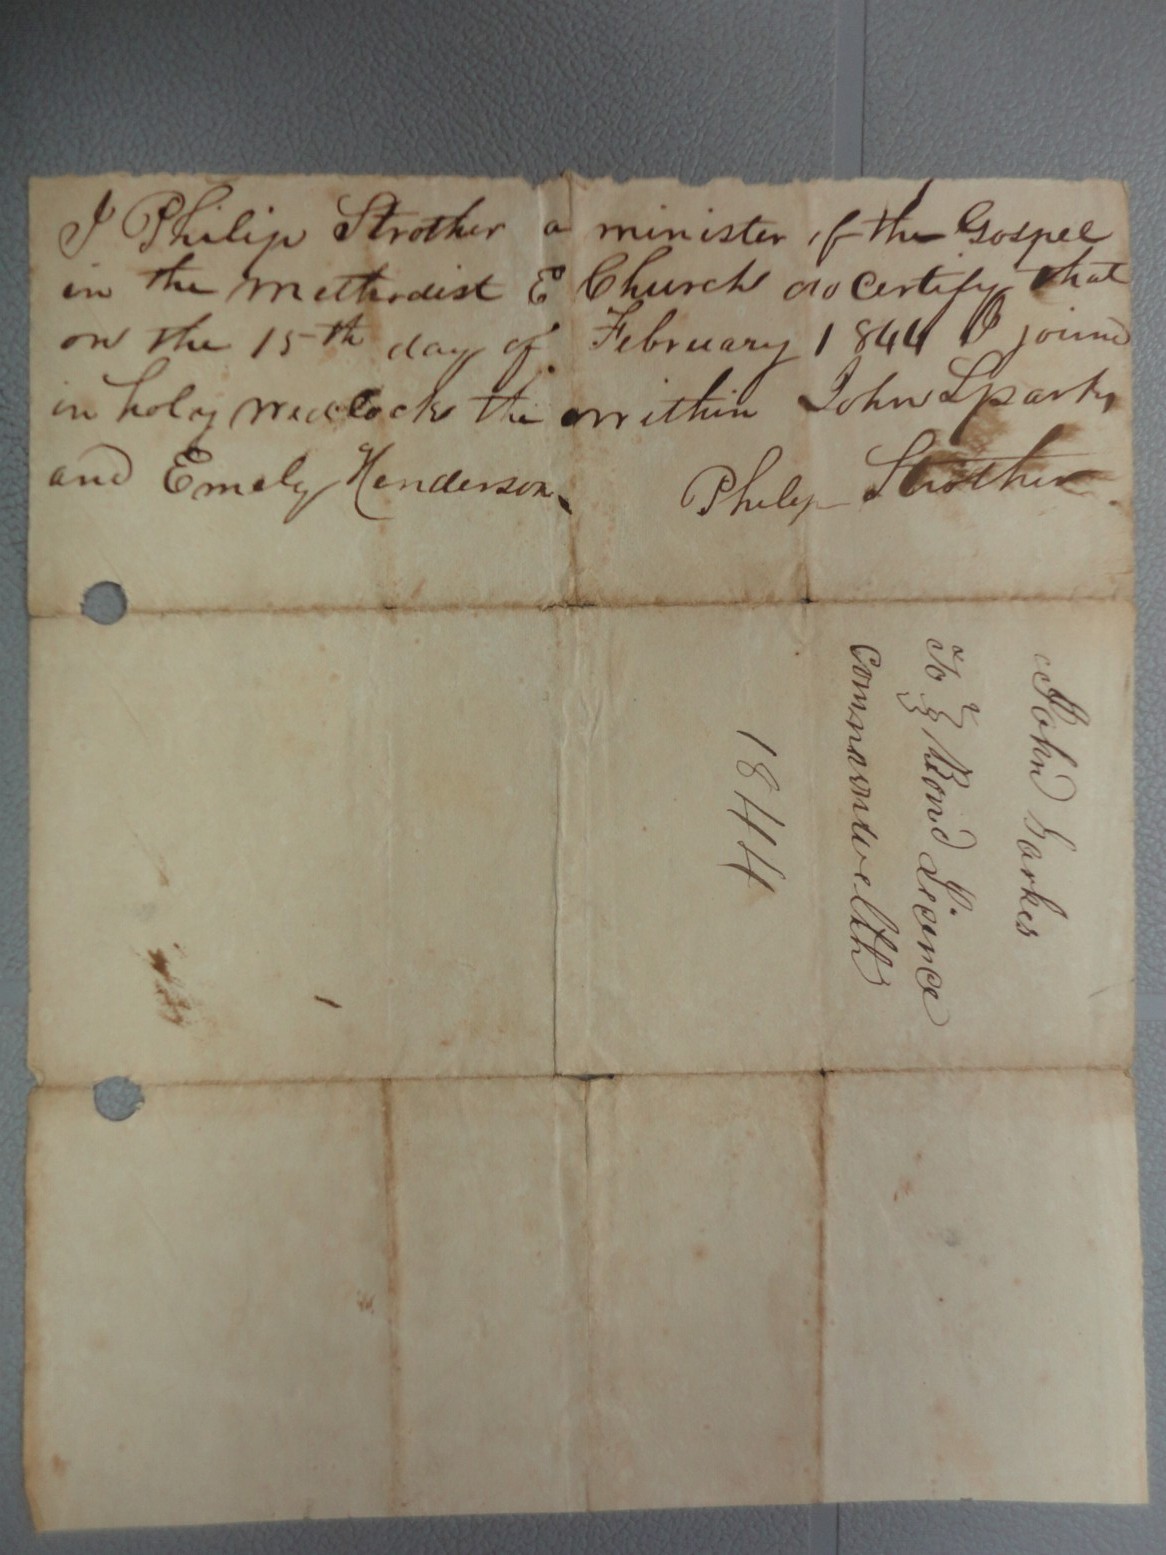 I Philip Strother a minister of the Gospel
in the Methodist E Church do certify that
on the 15th day of February 1844 I joind
in holy wedlock the within John Sparks
and Emely Henderson
Philip Strother
John Sarkes
To Bond Licence
Commonwelth
1844